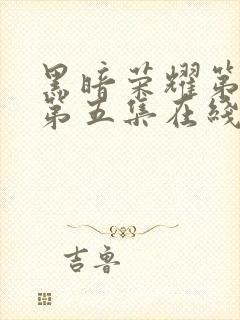 黑暗荣耀第
第五集在线
吉鲁